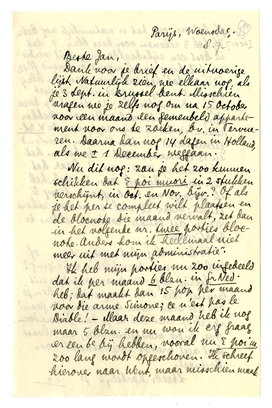 Parijs, Woensdag.
Beste Jan,
Dank voor je brief en de uitvoerige
lijst. Natuurlijk zien we elkaar nog, als
je 3 Sept. in Brussel bent. Misschien
vragen we je zelfs nog om na 15 October
voor een maand een gemeubeld apparte-
ment voor ons te zoeken, b.v. in Tervue-
ren. Daarna dan nog 14 dagen in Holland,
als we ± 1 December weggaan.
Nu dit nog: zou je het zoo kunnen
schikken dat E poi muori in 2 stukken
verschijnt, in Oct. en Nov. bijv.? Of als
je het per se compleet wilt plaatsen en
de blocnote die maand vervalt, zet dan
in het volgende nr. twee porties bloc-
note. Anders kom ik heelemaal niet
meer uit met mijn "administratie".
Ik heb mijn porties nu zoo ingedeeld
dat ik per maand 6 blzn. in Gr. Ned.
heb; dat maakt dan 15 pop per maand
voor die arme Simone; ce n'est pas le
Diable! — Maar deze maand heb ik nog
maar 5 blzn. en nu wou ik erg graag
er een be bij hebben, vooral nu E poi m.
zoo lang wordt opgeschoven. Ik schreef
hierover naar Went, maar misschien moet